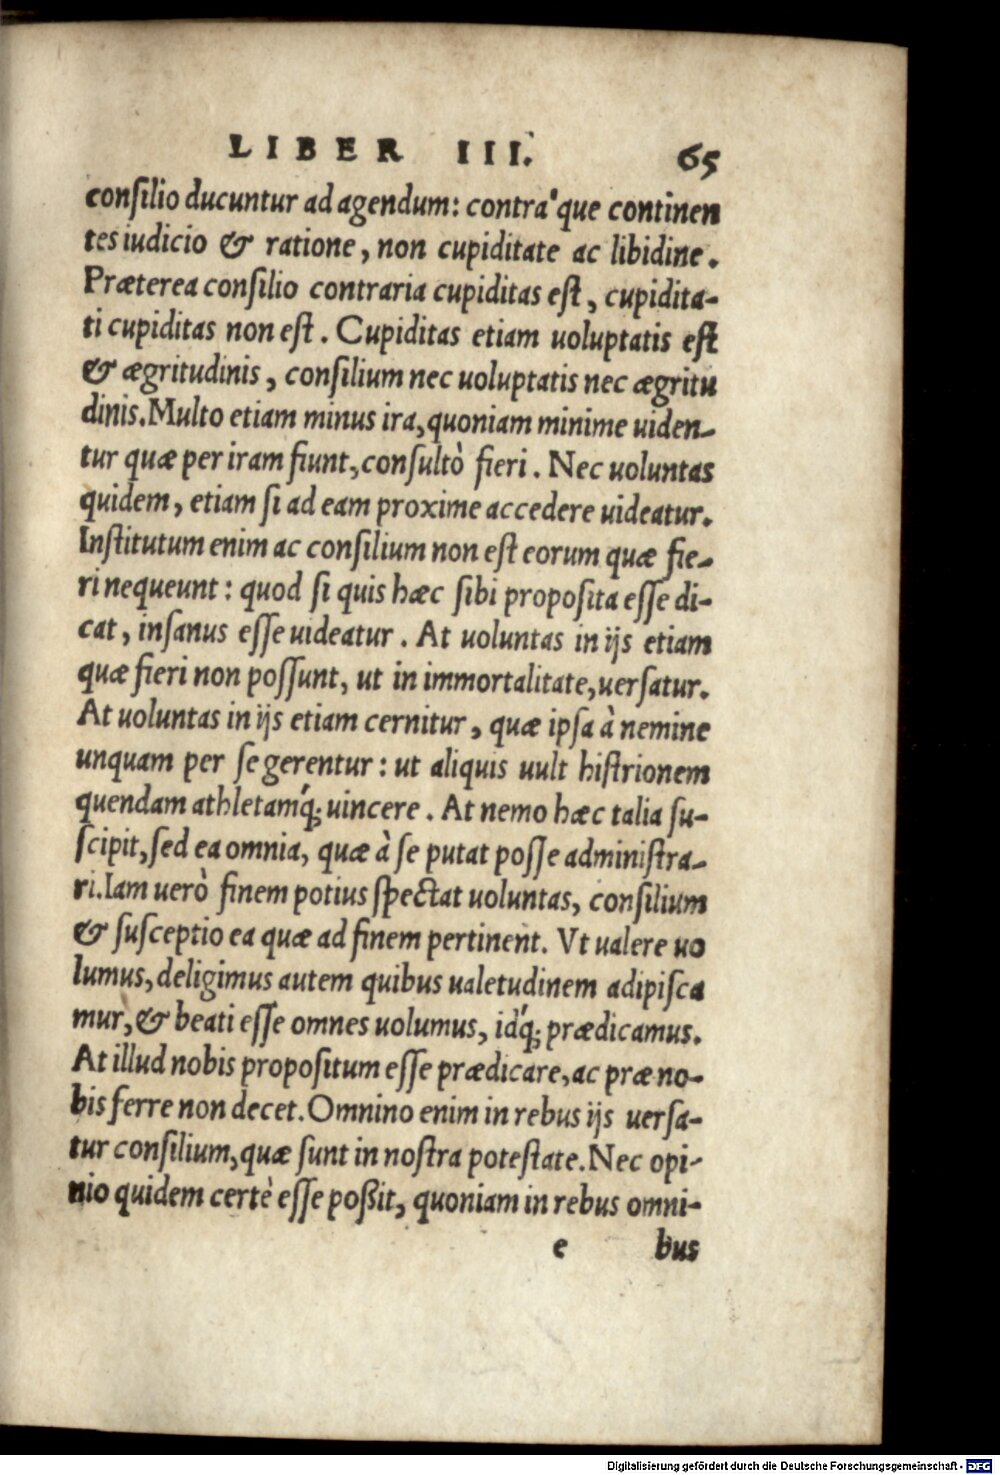 LIBER III. 65
conſilio ducuntur ad agendum: contra'que continen
tes iudicio & ratione, non cupiditate ac libidine.
Præterea conſilio contraria cupiditas eſt, cupidita-
ti cupiditas non eſt. Cupiditas etiam uoluptatis eſt
& ægritudinis, conſilium nec uoluptatis nec ægritu
dinis. Multo etiam minus ira, quoniam minime uiden-
tur quæ per iram fiunt, conſultò fieri. Nec uoluntas
quidem, etiam ſi ad eam proxime accedere uideatur.
Inſtitutum enim ac conſilium non eſt eorum quæ fie-
ri nequeunt: quod ſi quis hæc ſibi propoſita eſſe di-
cat, inſanus eſſe uideatur. At uoluntas in ijs etiam
quæ fieri non poſſunt, ut in immortalitate, uerſatur.
At uoluntas in ijs etiam cernitur, quæ ipſa à nemine
unquam per ſe gerentur: ut aliquis uult hiſtrionem
quendam athletamq́; uincere. At nemo hæc talia ſu-
ſcipit, ſed ea omnia, quæ à ſe putat poſſe adminiſtra-
ri. Iam uerò finem potius ſpectat uoluntas, conſilium
& ſuſceptio ea quæ ad finem pertinent. Vt ualere uo
lumus, deligimus autem quibus ualetudinem adipiſca
mur, & beati eſſe omnes uolumus, idq́; prædicamus.
At illud nobis propoſitum eſſe prædicare, ac præ no-
bis ferre non decet. Omnino enim in rebus ijs uerſa-
tur conſilium, quæ ſunt in noſtra poteſtate. Nec opi-
nio quidem certè eſſe poßit, quoniam in rebus omni-
e bus
Digitalisierung gefördert durch die Deutsche Forschungsgemeinschaft - DFG